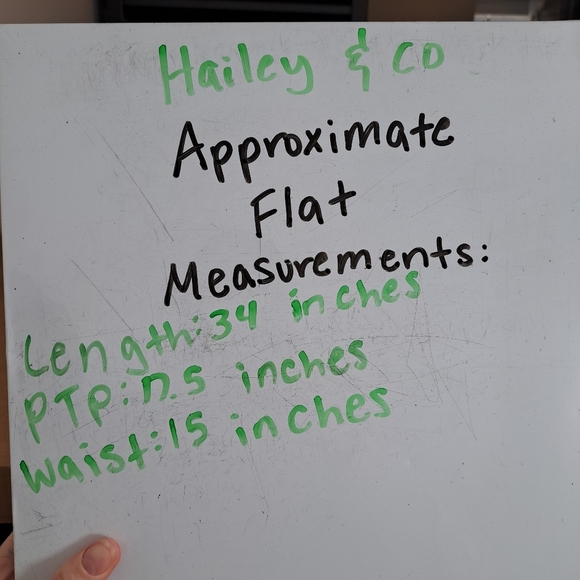 Hailey & co
Approximate
Flat
Measurements:
Length: 34 inches
PTP: 17.5 inches
Waist: 15 inches